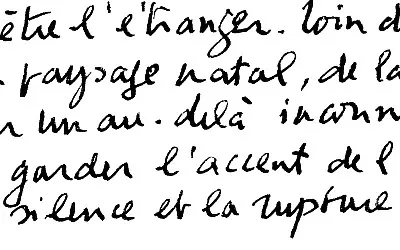 être l'étranger. loin d
paysage natal, de la
un au-delà inconn
garder l'accent de l
silence et la rupture